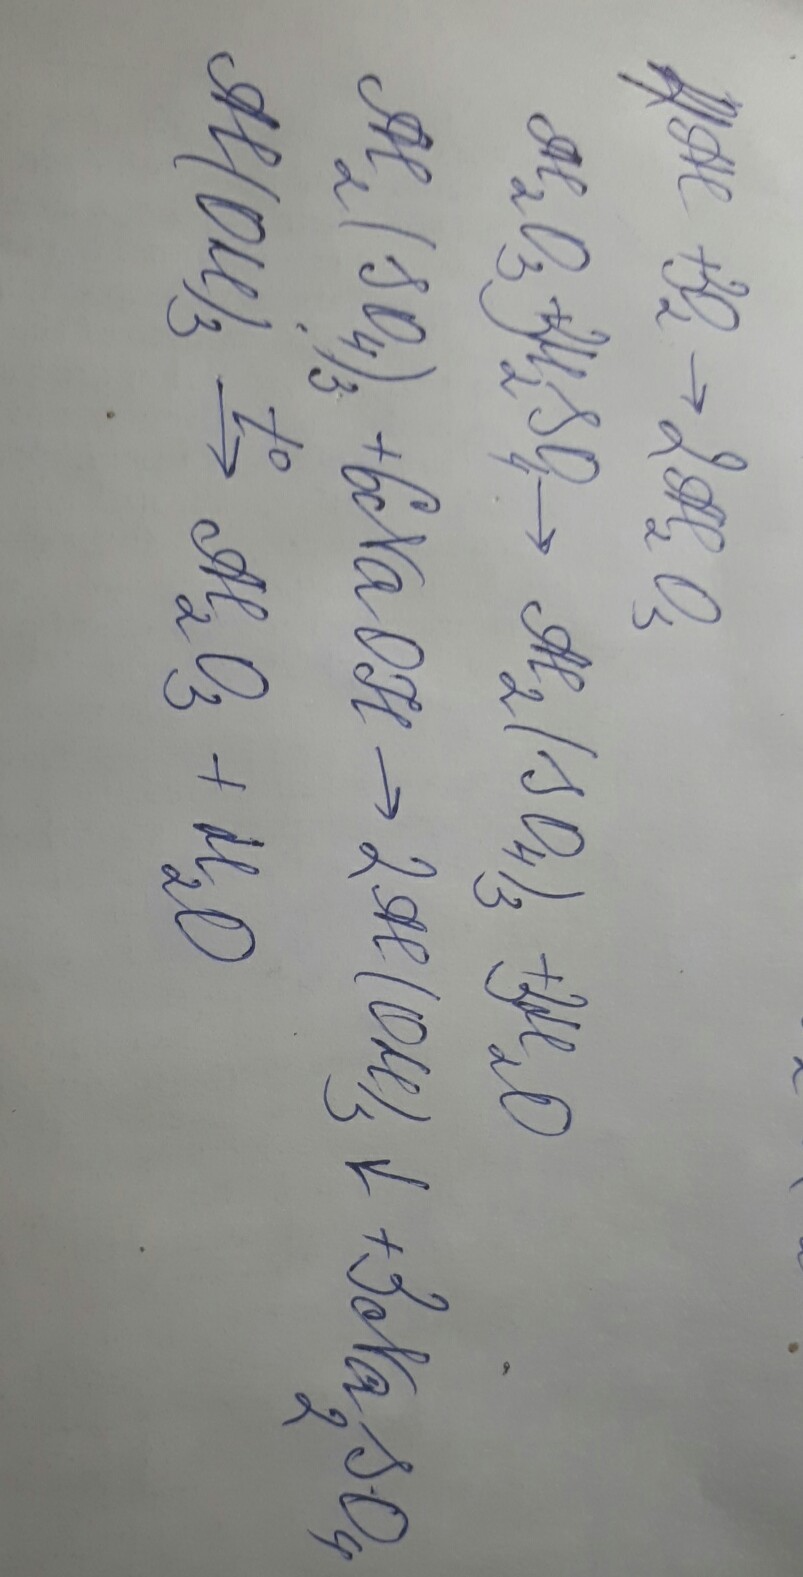 4Al + 3O₂ → 2Al₂O₃
Al₂O₃ + 3H₂SO₄ → Al₂(SO₄)₃ + 3H₂O
Al₂(SO₄)₃ + 6NaOH → 2Al(OH)₃ ↓ + 3Na₂SO₄
Al(OH)₃ t° → Al₂O₃ + H₂O